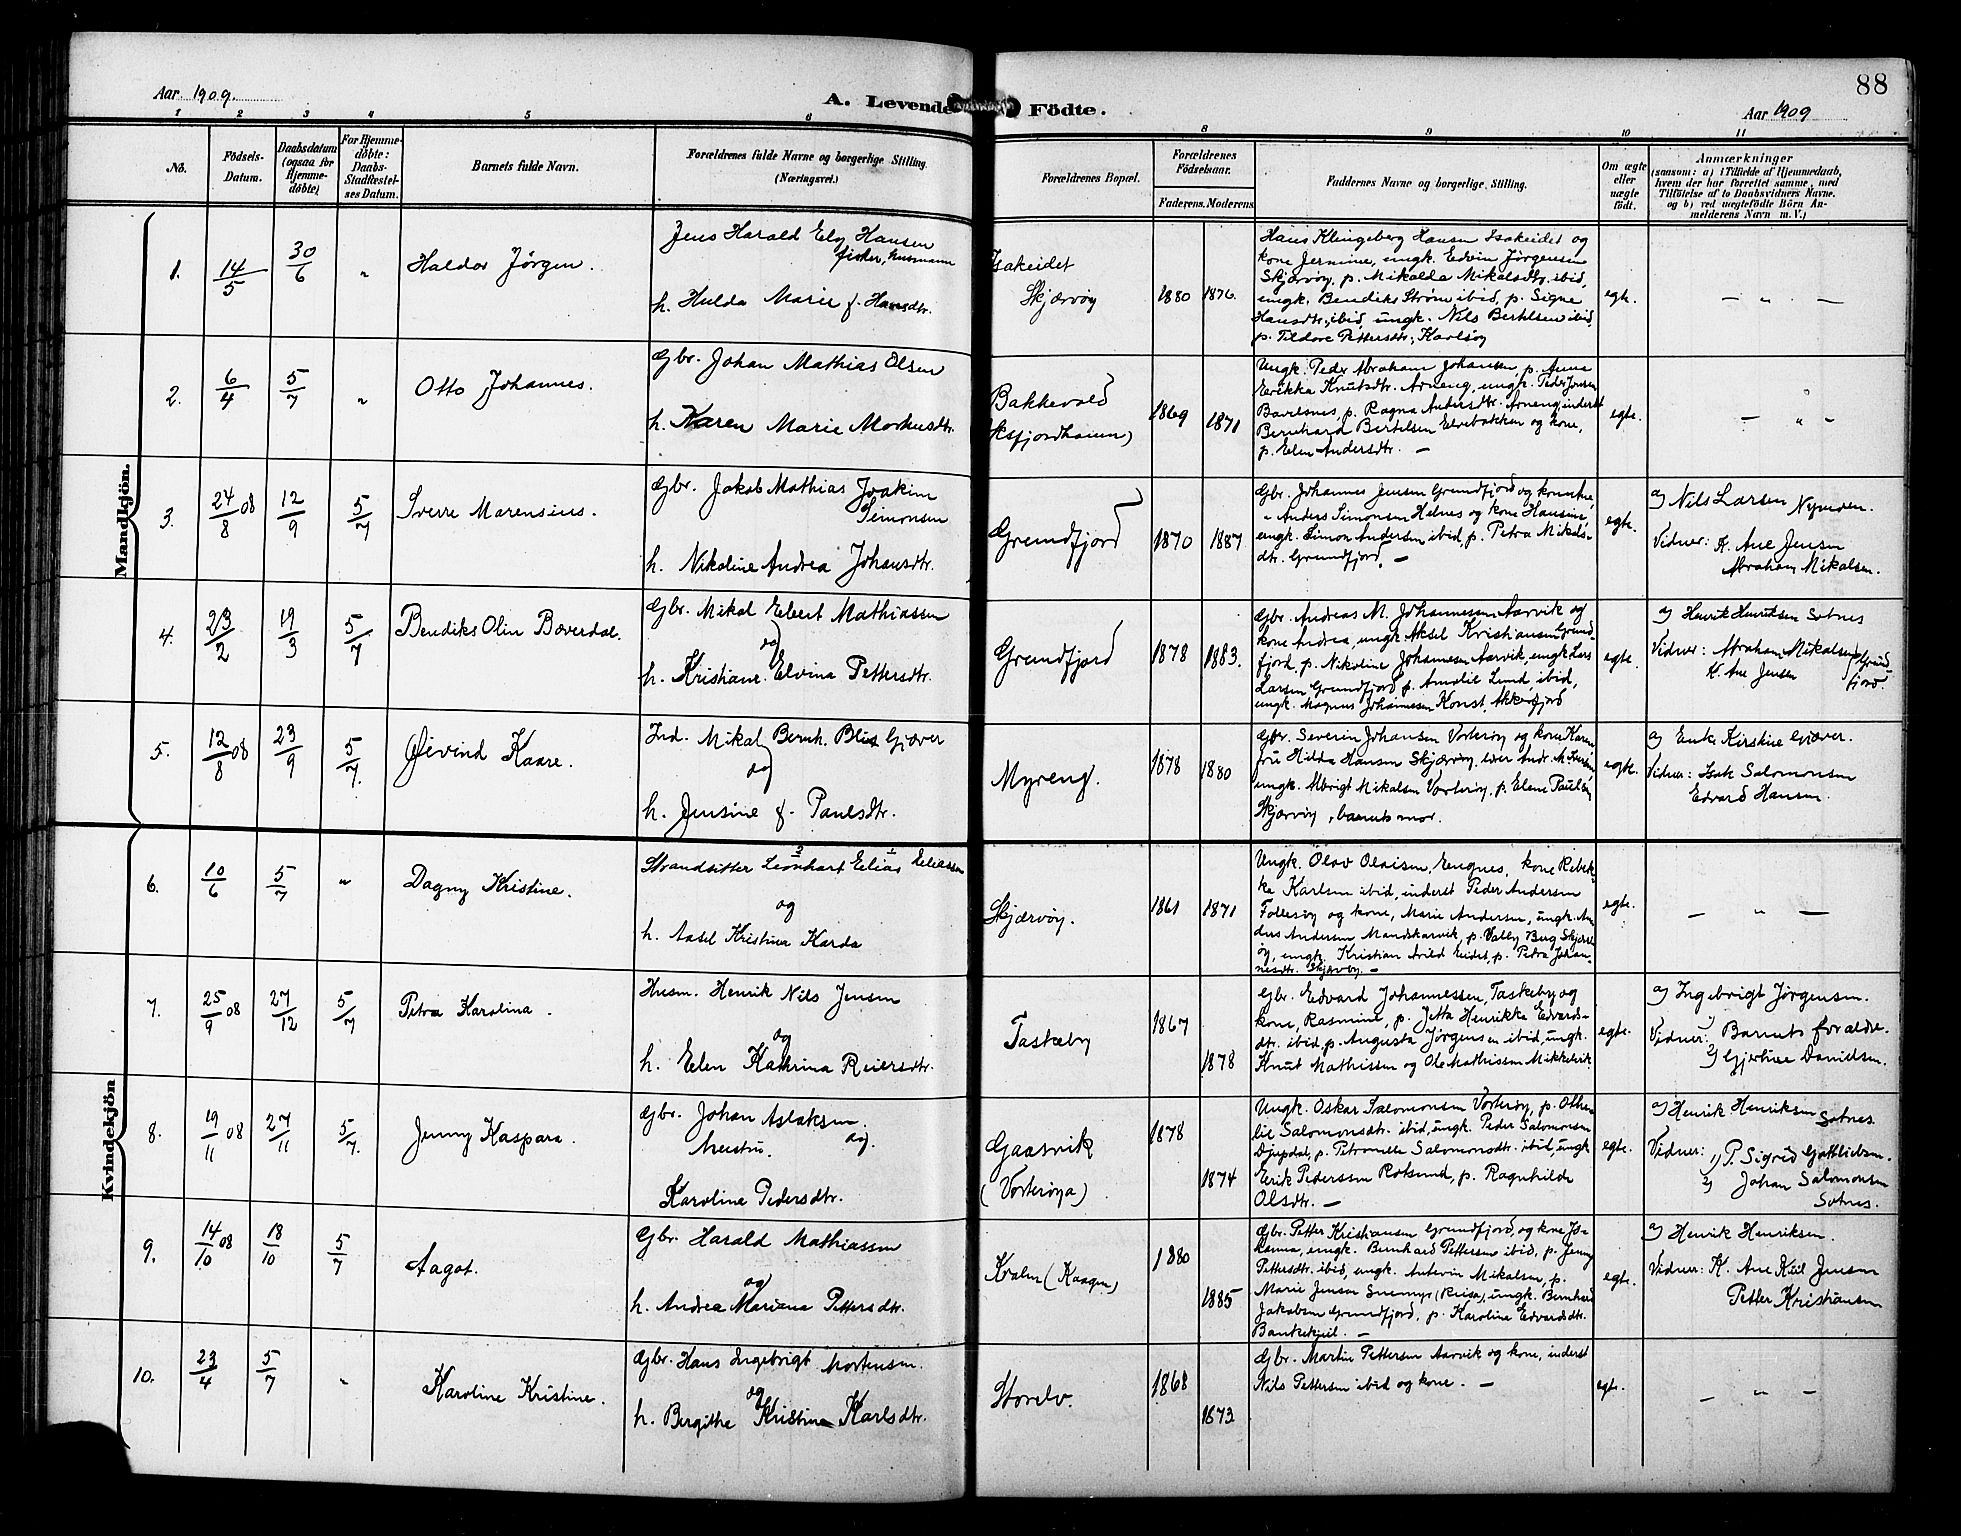 88
Aar 1909.
A. Levende Födte.
Aar 1909
1 2 3 4 5 6 8 9 10 11
No.
Födsels-
Datum.
Daabsdatum
(ogsaa for
Hjemme-
döbte)
For Hjemme-
döbte:
Daabs-
Stadfæstel-
ses Datum.
Barnets fulde Navn.
Forældrenes fulde Navne og borgerlige Stilling.
(Næringsvei.)
Forældrenes Bopæl.
Forældrenes
Födselsaar.
Faderens. Moderens.
Faddernes Navne og borgerlige, Stilling.
Om ægte
eller
uægte
födt.
Anmærkninger
(saasom: a) i Tilfælde af Hjemmedaab,
hvem der har forrettet samme, med
Tilföielse af to Daabsvidners Navne.
og b) ved uægtefödte Börn An-
melderens Navn m. V.)
Mandkjön.
1. 14/5 30/6 "
Haldor Jörgen.
Jens Harald Hansen
fisker, husmann
h. Hulda Marie f. Hansdtr.
Isakeidet
Skjærvöy
1880 1876.
Hans Klingeberg Hansen Isakeidet og
kone Jernine, ungk. Edvin Jörgensen
Skjærvöy, p. Mikalda Mikalsdtr. ibid,
ungk. Bendiks Ström ibid, p. Signe
Hansdtr. ibid, ungk. Nils Bertelsen ibid,
p. Tildore Pettersdtr. Karlsöy
egte.
— " —
2. 6/4 5/7 "
Otto Johannes.
Gbr. Johan Mathias Olsen
h. Karen Marie Markusdtr.
Bakkevold
1869 1871
Ungk. Peder Abraham Johansen p. Anna
Erikka Knutsdtr. Arneng, ungk. Peder Jensen
p. Ragna Andersdtr. Arneng, inderst
Bernhard Bertelsen Elvebakken og kone,
p. Elen Andersdtr. —
egte.
— " -
3. 24/8 08 12/9 5/7
Sverre Marensius.
Gbr. Jakob Mathias Joakim
Simonsen
h. Nikoline Andrea Johansdtr.
Grundfjord
1870 1887
Gbr. Johannes Jensen Grundfjord og kone Ane,
" Anders Simonsen Helnes og kone Hansine,
ungk. Simon Andersen ibid, p. Petra Mikals-
dtr. Grundfjord. —
egte.
a) Nils Larsen
Vidner: K. Ane Jensen
Abraham Mikalsen.
4. 23/2 19/3 5/7
Bendiks Olin Böverdal.
Gbr. Mikal Ebert Mathiassen
og
h. Kristiane Elvina Pettersdtr.
Grundfjord
1878 1883.
Gbr. Andreas M. Johannessen Aarvik og
kone Andrea, ungk. Aksel Kristiansen Grund-
fjord, p. Nikoline Johannesen Aarvik, ungk. Lars
Larsen Grundfjord p. Amalie Lund ibid,
ungk. Magnus Johannesen Konst. Akkarfjord
egte.
a) Henrik Henriksen Sotnes
Vidner: Abraham Mikalsen
K. Ane Jensen
Grund
fjord.
5. 12/8 08 23/9 5/7.
Öivind Kaare.
Ind. Mikal Bernh. Gjæver
og
h. Jensine f. Paulsdtr.
Myreng.
1878 1880
Gbr. Severin Johansen Vorteröy og kone Karen
fru Hilda Hansen Skjærvöy,
ungk. Albrigt Mikalsen Vorteröy, p. Elene Paulsen
Skjærvöy, barnets mor.
egte.
a) Enke Kirstine Gjæver.
Vidner: Isak Salomonsen
Edvard Hansen.
Kvindekjön
6. 10/6 5/7 "
Dagny Kristine.
Strandsitter Leonhart Elias
og
h. Aasel Kristina Karda
Skjærvöy.
1861 1871
Ungk. Olav Olaisen, Engnes, kone Rebek-
ka Karlsen ibid, inderst Peder Andersen
Follesöy og kone, Marie Andersen, ungk. An-
ders Andersen Mandskarvik, p. Valby Berg Skjærv-
öy, ungk. Kristian Arild Eidet, p. Petra Johan-
nesdtr. Skjærvöy. —
egte.
— " —
7. 25/9 08 27/12 5/7
Petra Karolina.
Husm. Henrik Nils Jensen
og
h. Elen Kathrina Reiersdtr.
Taskeby
1867
1878
Gbr. Edvard Johannessen, Taskeby og
kone, Rasmine, p. Jetta Henrikke Edvards-
dtr. ibid, p. Augusta Jörgensen ibid, ungk.
Knut Mathissen og Ole Mathissen
egte.
a) Ingebrigt Jörgensen.
Vidner: 1) Barnets forældre.
2) Gjertine Danielsen.
8. 19/11 08 27/11 5/7.
Jenny Kaspara.
Gbr. Johan Aslaksen
og.
Karoline Pedersdtr.
Gaasvik
(Vorteröya)
1878
1874
Ungk. Oskar Salomonsen Vorteröy, p. Othe-
lie Salomonsdtr. ibid, ungk. Peder Salomonsen
Djupdal, p. Petronelle Salomonsdtr. ibid, ungk.
Erik Pederssen Rotsund, p. Ragnhilde
Olsdtr. —
egte.
a) Henrik Henriksen
Sotnes
Vidner: 1) P. Sigrid Gottliebsen.
2) Johan Salomonsen
Sotnes.
9. 14/10 08 18/10 5/7
Aagot.
Gbr. Harald Mathiassen
og
h. Andrea Mariana Pettersdtr.
(Kaagen)
1880
1885
Gbr. Petter Kristiansen Grundfjord, og kone Jo-
hanna, ungk. Bernhard Pettersen ibid, p. Jenny
Pettersdtr. ibid, ungk. Antonin Mikalsen, p.
Marie Jensen Snemyr (Reisa), ungk. Bernhard
Jakobsen Grundfjord, p. Karoline Edvardsdtr.
—
egte.
a) Henrik Henriksen.
Vidner: K. Ane Kiil Jensen
Petter Kristiansen
10. 23/4 5/7 "
Karoline Kristine.
Gbr. Hans Ingebrigt Mortensen.
og
h. Bergithe Kristine Karlsdtr.
Storelv.
1868
1873
Gbr. Martin Pettersen Aarvik og kone, inderst
Nils Pettersen ibid og kone. —
egte.
— " —